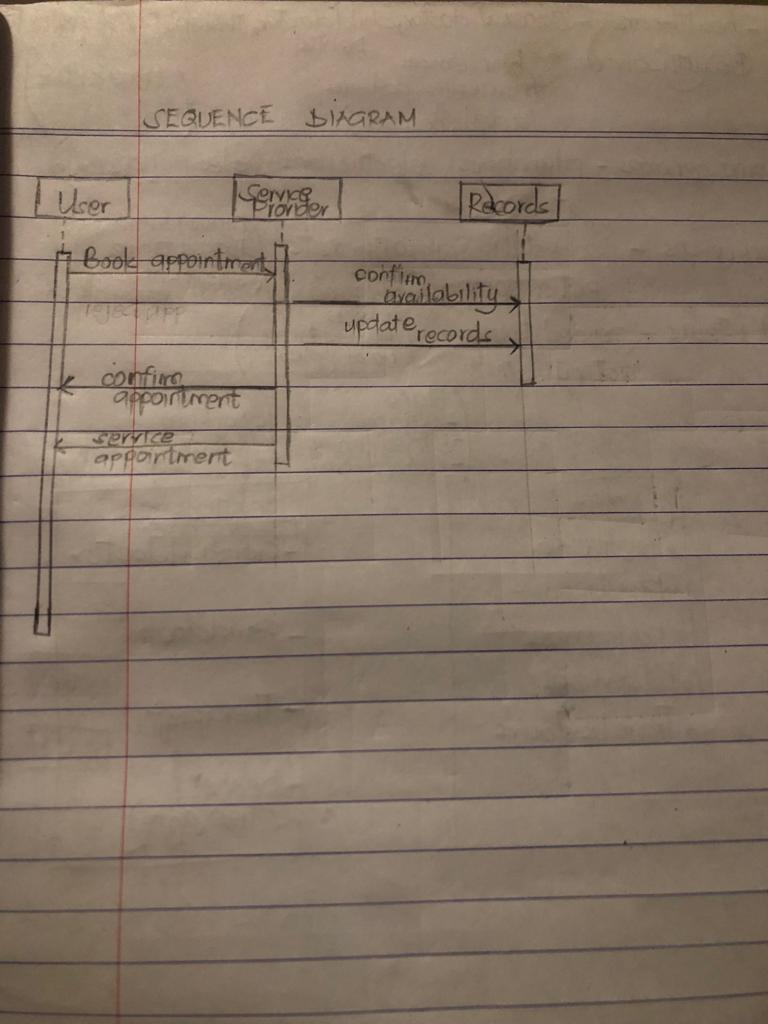 SEQUENCE DIAGRAM
User
Service
Provider
Records
Book appointment
confirm
availability
reject app
update records
confirm
appointment
service
appointment